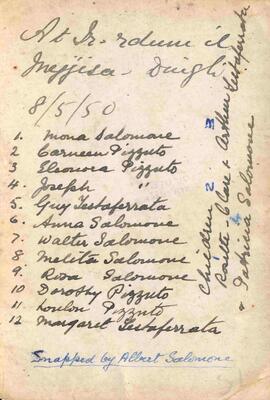 At Ir-rdum il
Mejjisa - Dingli
8/5/50
1. Mona Salomone
2 Carmeen Pizzuto
3 Eleonora Pizzuto
4. Joseph "
5. Guy Testaferrata
6. Anna Salomone
7. Walter Salomone
8 Melita Salomone
9. Rosa Salomone
10 Dorothy Pizzuto
11 Loulon Pizzuto
12 Margaret Testaferrata
Snapped by Albert Salomone
Children
1 2 3
Rosette Clare & Arthur Testaferrata
4
& Patricia Salomone